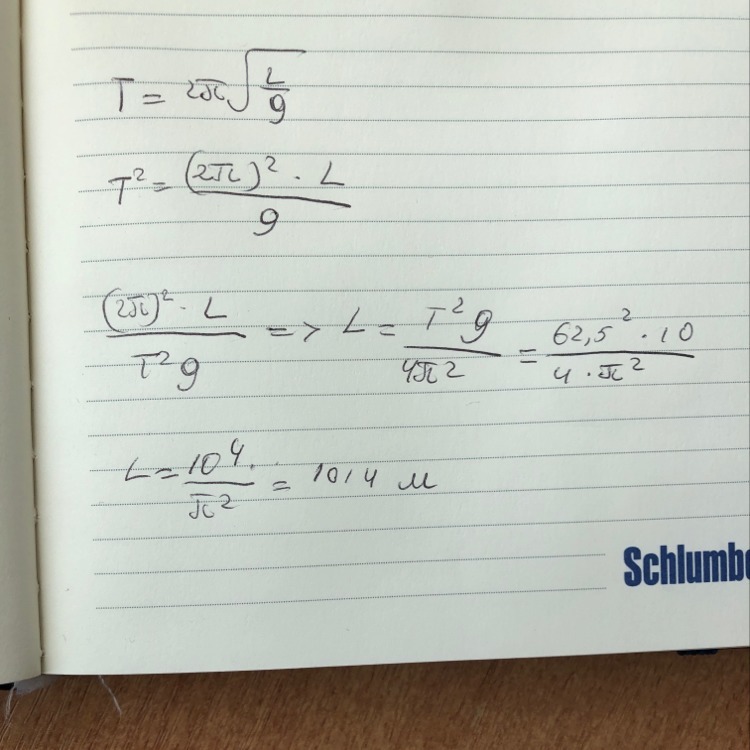 T = 2π√(L/g)
T² = (2π)² · L / g
(2π)² · L / T² g => L = T² g / 4π² = 62,5² · 10 / 4 · π²
L = 10⁴ / π² = 1014 м
Schlumbe